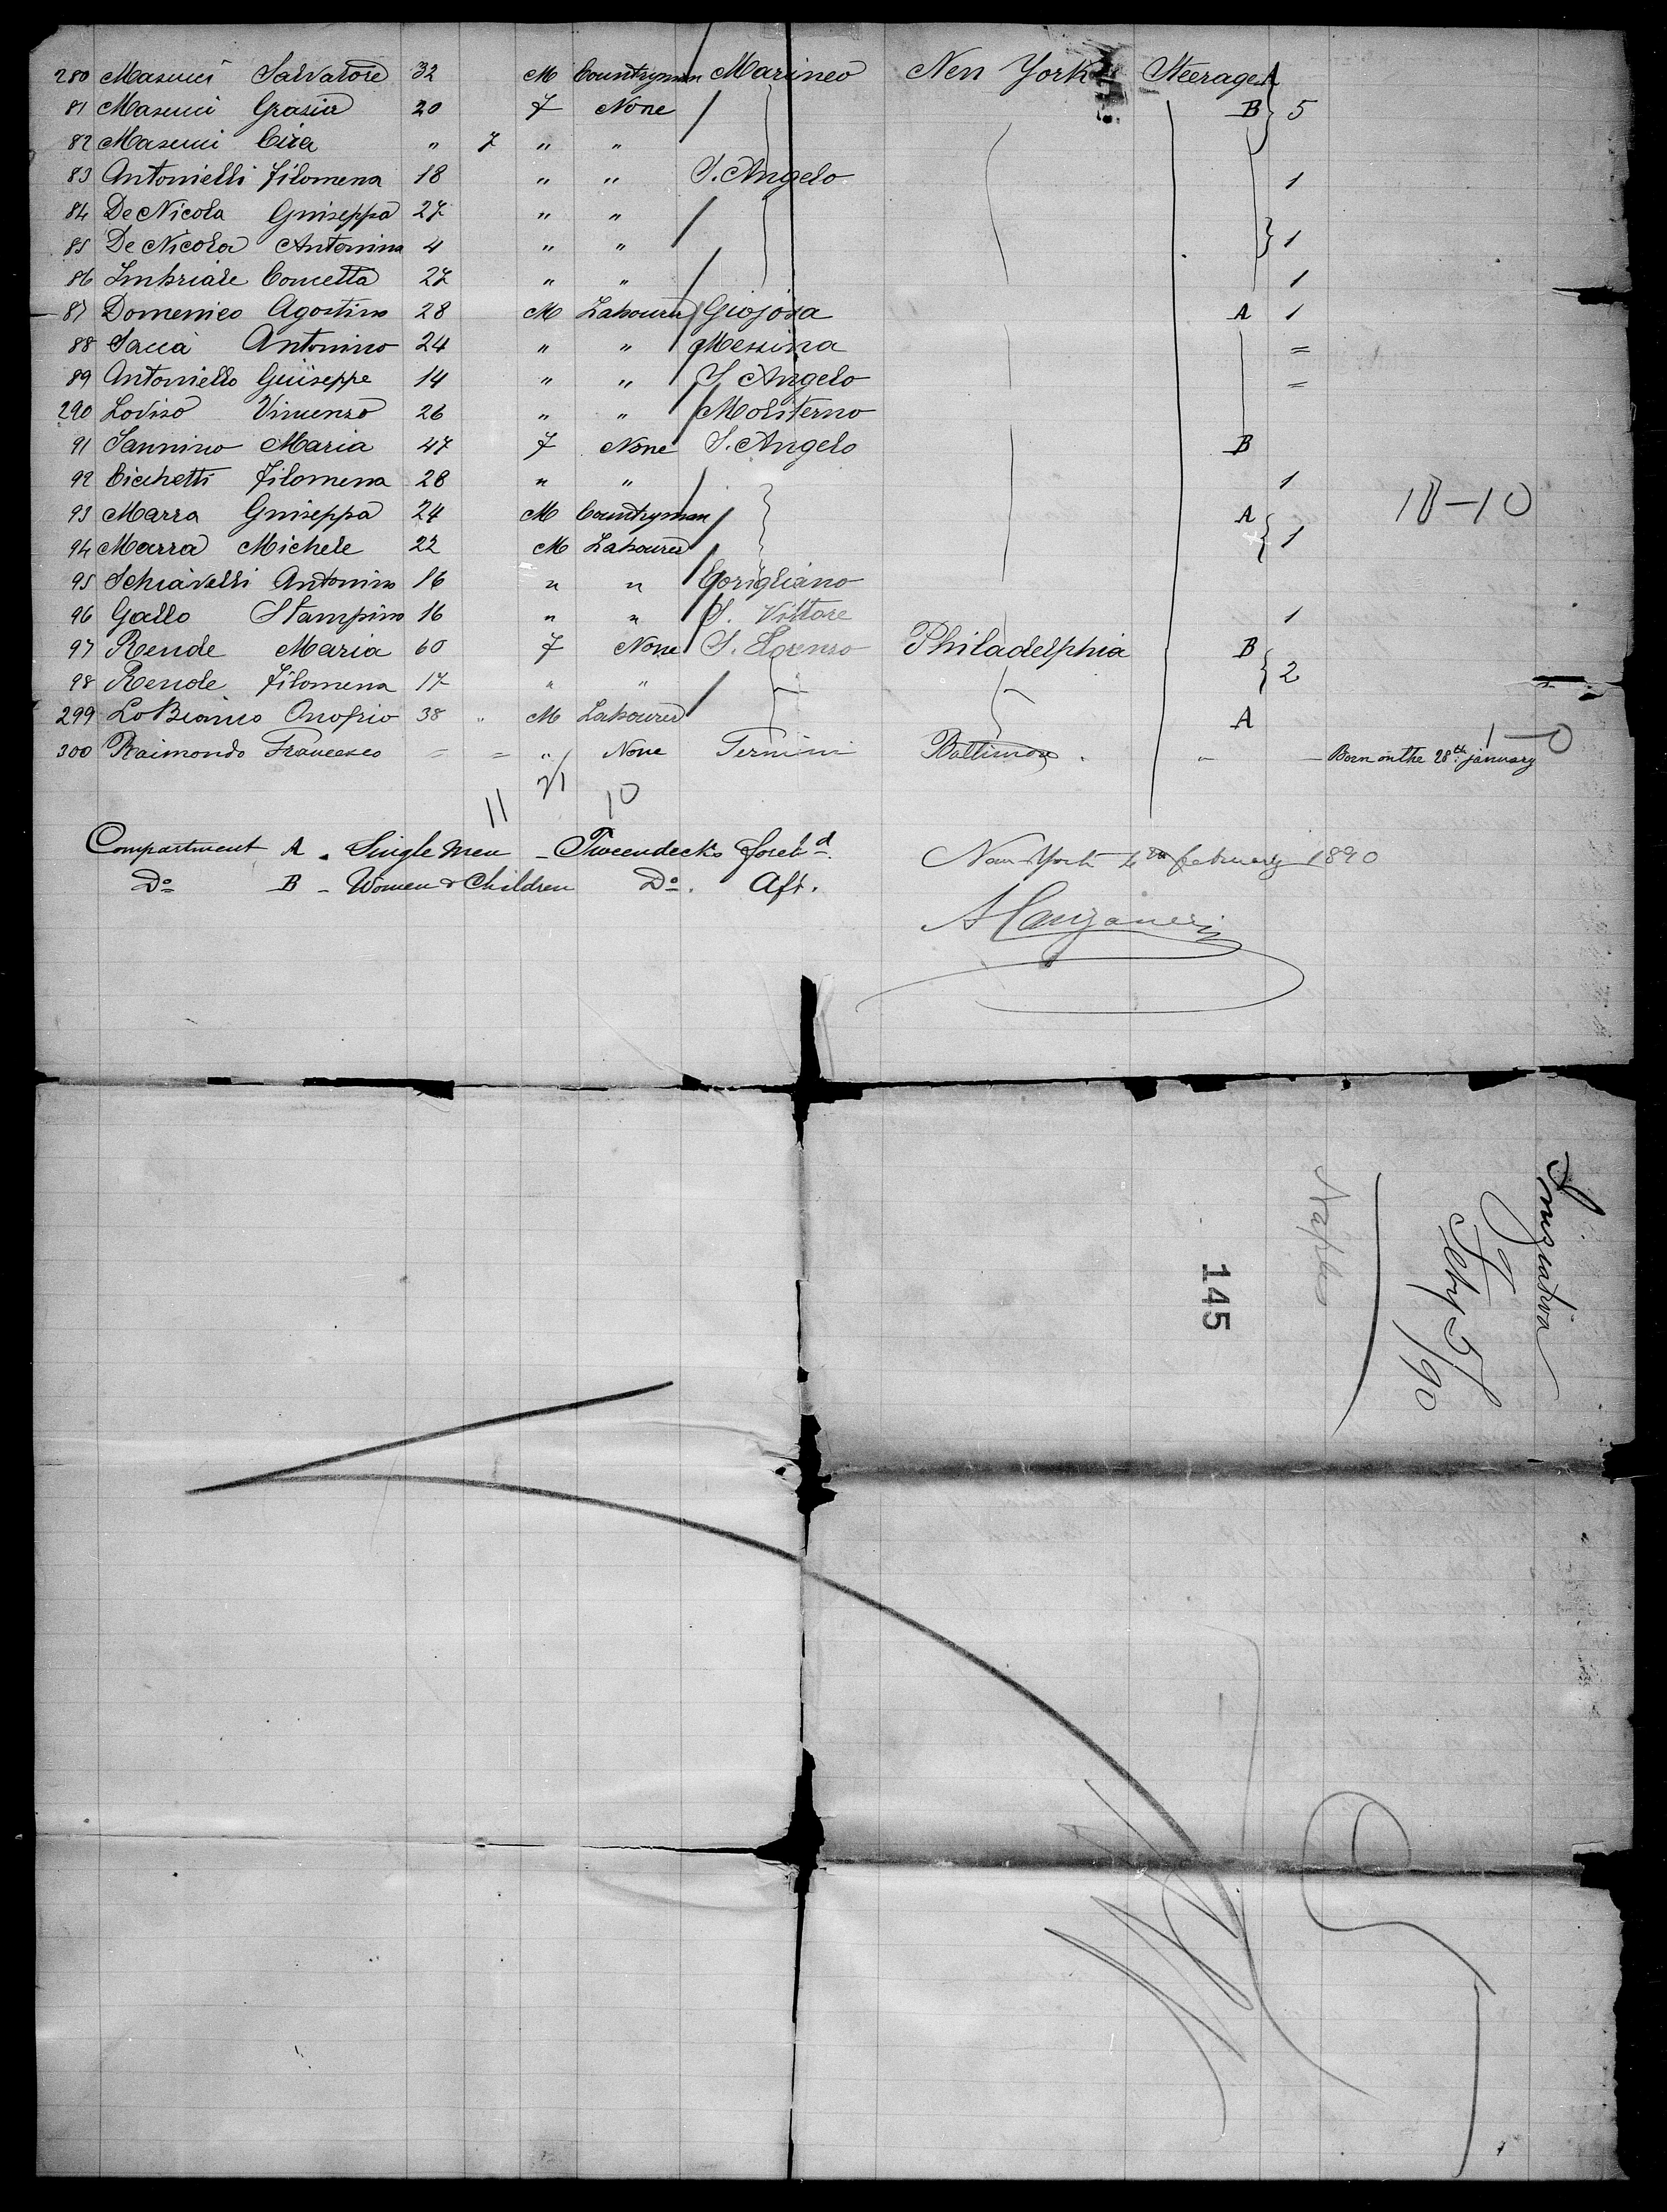 280 Masucci Salvatore 32 M Countryman Marineo New York Steerage A
81 Masucci Grasia 20 F None B 5
82 Masucci Cira " 7 " "
83 Antonielli Filomena 18 " " S. Angelo 1
84 De Nicola Guiseppa 27 " "
85 De Nicola Antonina 4 " " 1
86 Imbriale Concetta 27 " " 1
87 Domenico Agostino 28 M Labourer Giojosa A 1
88 Saccà Antonino 24 " " Messina =
89 Antoniello Guiseppe 14 " " S. Angelo =
290 Loviso Vincenzo 26 " " Moliterno
91 Sannino Maria 47 F None S. Angelo B
92 Cicchetti Filomena 28 " " 1
93 Marra Guiseppa 24 M Countryman A
94 Marra Michele 22 M Labourer 1
18-10
95 Schiavelli Antonino 16 " " Corigliano
96 Gallo Stampino 16 " " S. Vittore 1
97 Rende Maria 60 F None S. Lorenzo Philadelphia B
98 Rende Filomena 17 " " 2
299 Lo Bianco Onofrio 38 " M Labourer A
1-0
300 Raimondo Francesco = = " None Termini Baltimore " Born on the 28th january
11 21 10
Compartment A. Single Men - Tweendecks Foreld.
Do B - Women & Children Do. Aft.
New-York 4th february 1890
Naples
Feby 5/90
145